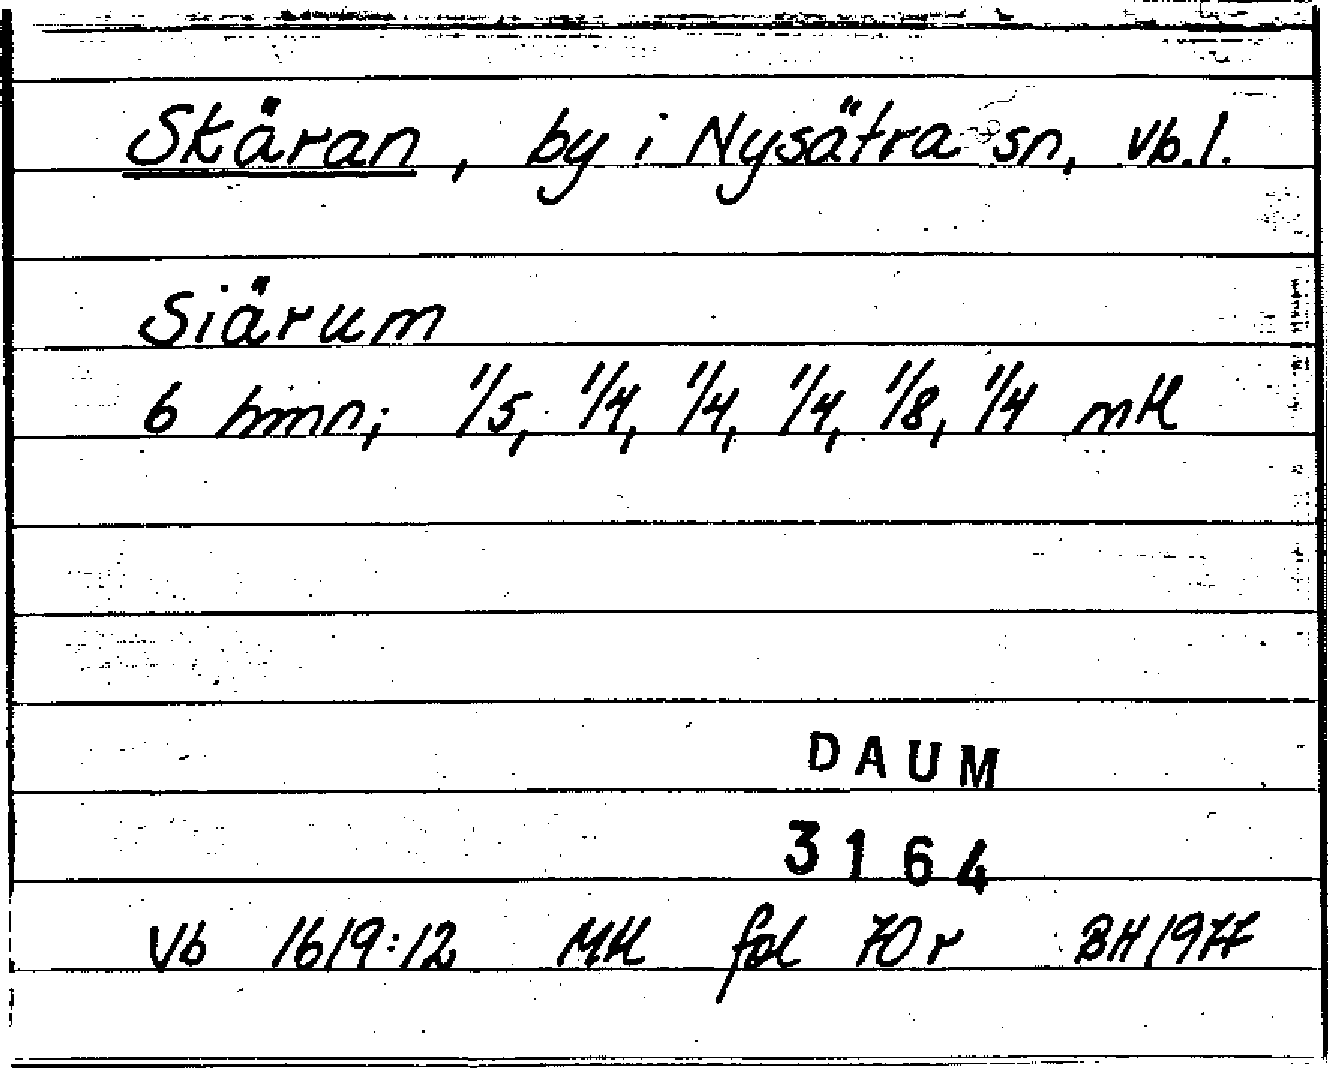 Skäran, by i Nysätra sn, Vb.l.
Siärum
6 hmn; 1/5, 1/4, 1/4, 1/4, 1/8, 1/4 mtl
DAUM
3164
Vb 1619:12 Mtl fol 70r BH1977